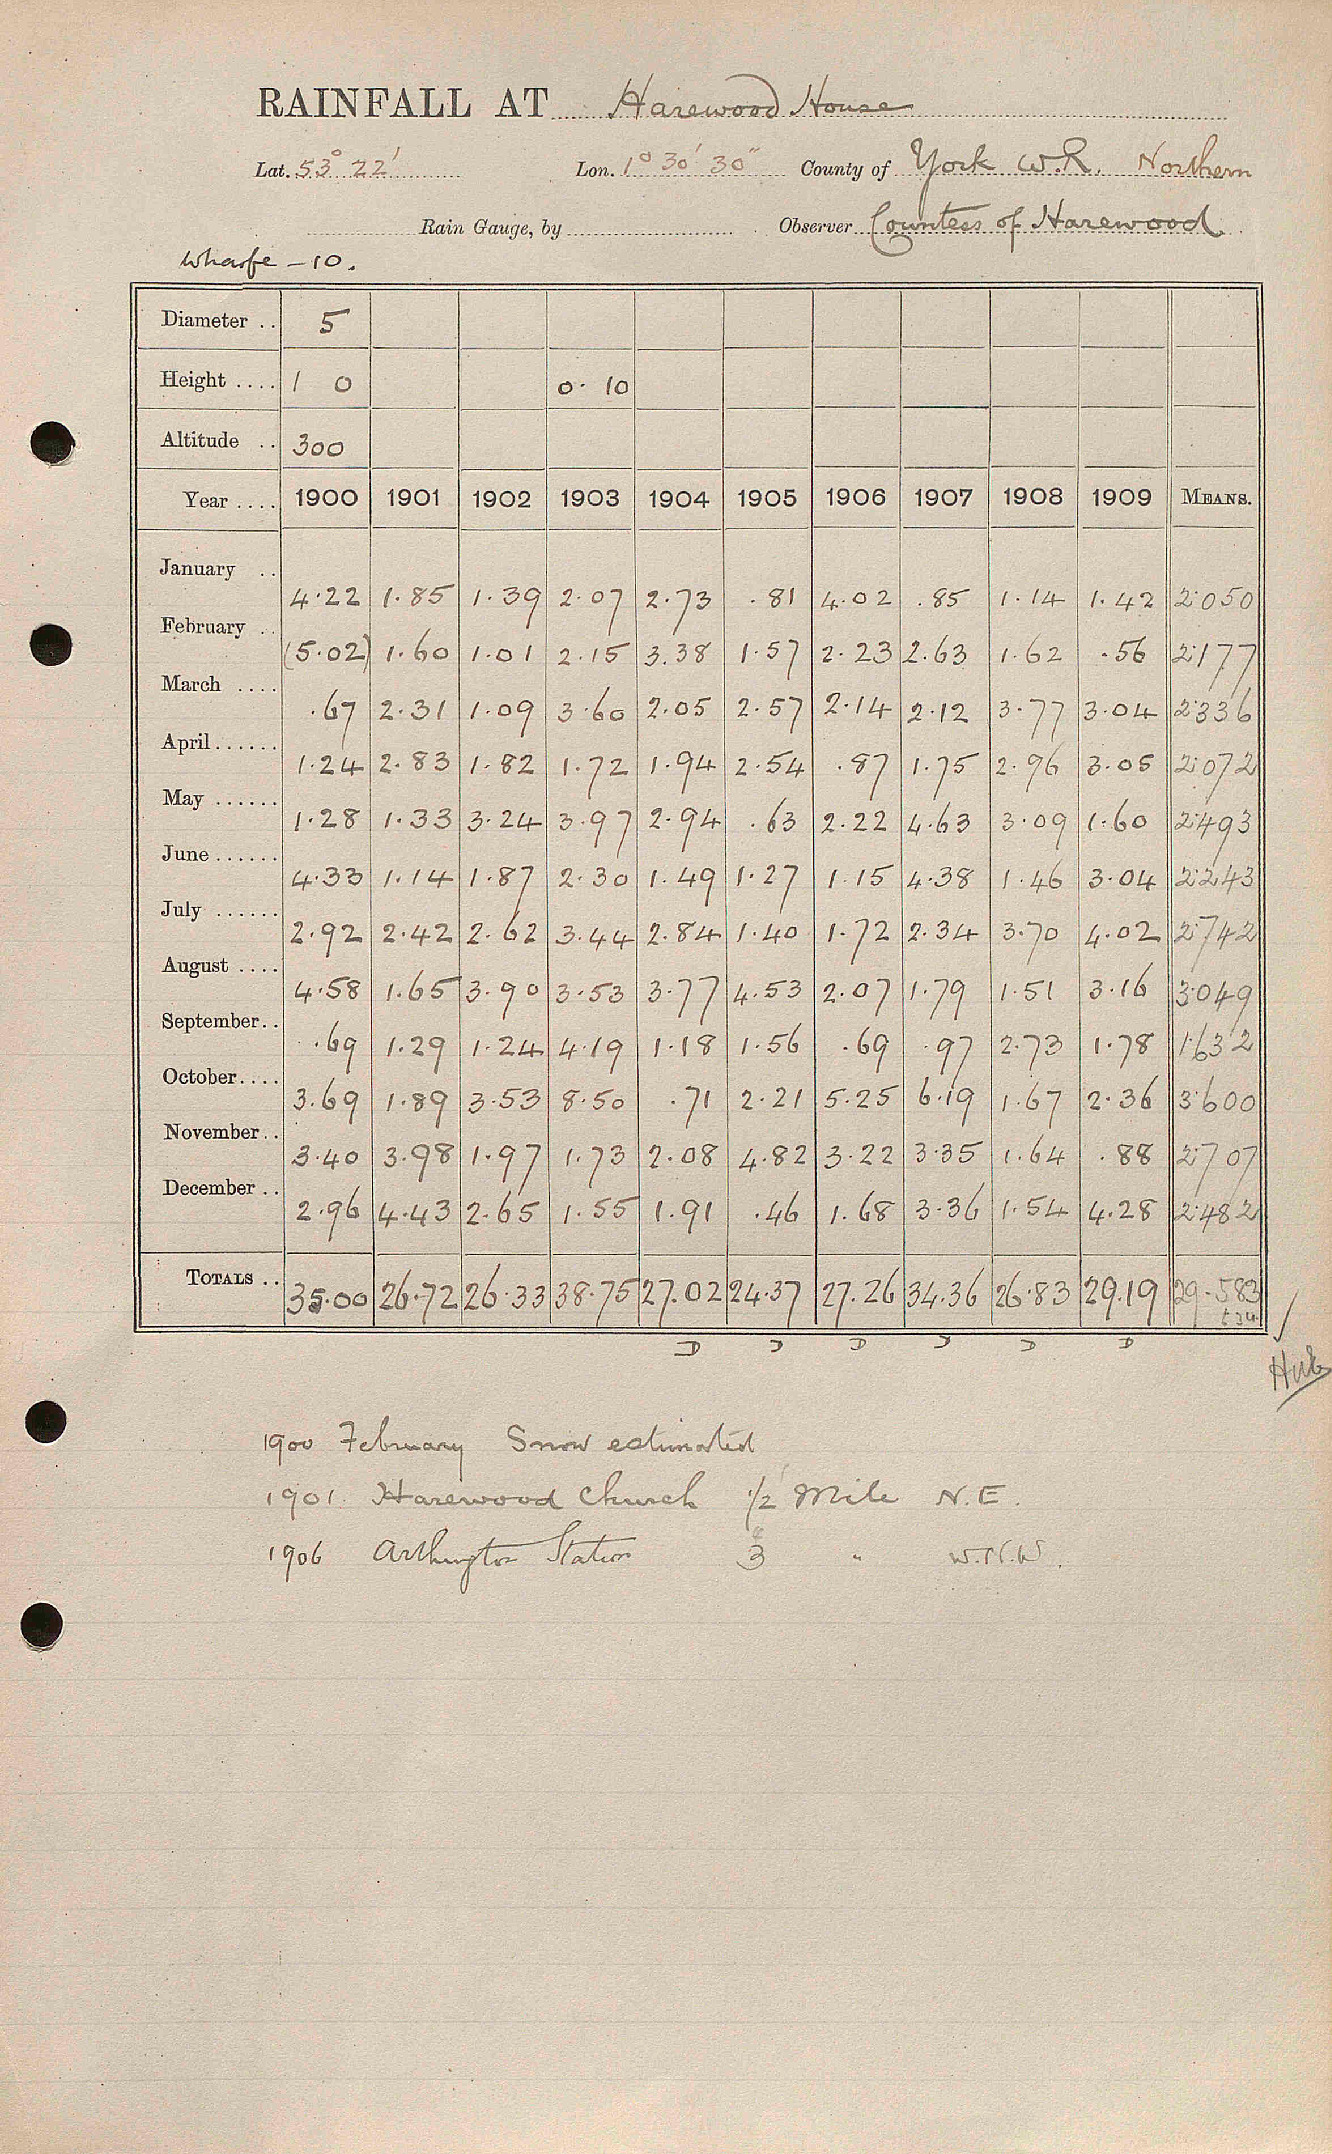 RAINFALL AT Harewood House
Lat. 53° 22' Lon. 1° 30' 30" County of York W.R. Northern
Rain Gauge, by Observer Countess of Harewood
Wharfe – 10.
Diameter .. 5
Height .... 1 0 0. 10
Altitude .. 300
Year .... 1900 1901 1902 1903 1904 1905 1906 1907 1908 1909 MEANS.
January .. 4.22 1.85 1.39 2.07 2.73 .81 4.02 .85 1.14 1.42 2.050
February .. (5.02) 1.60 1.01 2.15 3.38 1.57 2.23 2.63 1.62 .56 2.177
March .... .67 2.31 1.09 3.60 2.05 2.57 2.14 2.12 3.77 3.04 2.336
April ...... 1.24 2.83 1.82 1.72 1.94 2.54 .87 1.75 2.96 3.05 2.072
May ...... 1.28 1.33 3.24 3.97 2.94 .63 2.22 4.63 3.09 1.60 2.493
June ...... 4.33 1.14 1.87 2.30 1.49 1.27 1.15 4.38 1.46 3.04 2.243
July ...... 2.92 2.42 2.62 3.44 2.84 1.40 1.72 2.34 3.70 4.02 2.742
August .... 4.58 1.65 3.90 3.53 3.77 4.53 2.07 1.79 1.51 3.16 3.049
September .. .69 1.29 1.24 4.19 1.18 1.56 .69 .97 2.73 1.78 1.632
October .... 3.69 1.89 3.53 8.50 .71 2.21 5.25 6.19 1.67 2.36 3.600
November .. 3.40 3.98 1.97 1.73 2.08 4.82 3.22 3.35 1.64 .88 2.707
December .. 2.96 4.43 2.65 1.55 1.91 .46 1.68 3.36 1.54 4.28 2.482
TOTALS .. 35.00 26.72 26.33 38.75 27.02 24.37 27.26 34.36 26.83 29.19 29.583
D D D D D D
1900 February Snow estimated
1901. Harewood Church 1/2 Mile N.E.
1906 Arthington Station 3 " W.N.W.